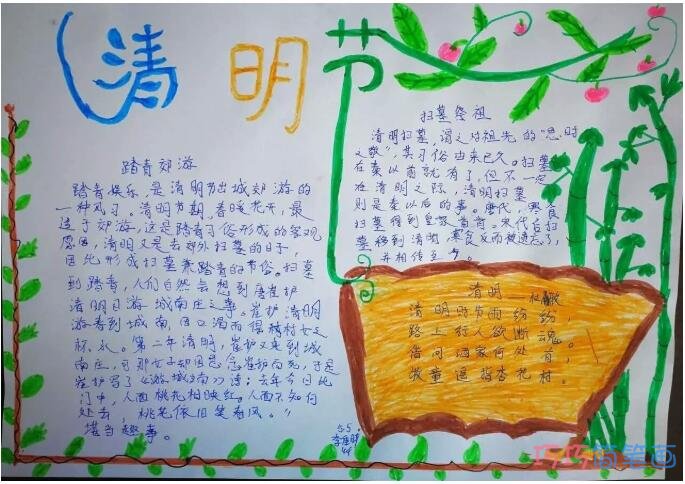 清明节
踏青郊游
踏青娱乐,是清明节出城郊游的
一种风习。清明节期,春暖花开,最
适于郊游,这是踏青习俗形成的客观
原因,清明又是去郊外扫墓的日子,
因此形成扫墓兼踏青的节俗。扫墓
到踏青,人们自然会想到唐崔护
清明日游城南庄之事。崔护清明
游春到城南,因口渴而得被村女之
杯水。第二年清明,崔护又来到城
南庄,可那女子却因思念崔护而死,于是
崔护写了《游城南》诗:去年今日此
门中,人面桃花相映红。人面不知何
处去,桃花依旧笑春风。”
堪当趣事。
扫墓祭祖
清明扫墓,谓之对祖先的“思时
之敬”,其习俗由来已久。扫墓
在秦以前就有了,但不一定
在清明之际,清明扫墓
则是秦以后的事。唐代,寒食
扫墓得到皇家
墓移到清明,寒食反而被遗忘了,
并相传至今。
清明——杜牧
清明时节雨纷纷,
路上行人欲断魂。
借问酒家何处有,
牧童遥指杏花村。
5.5
44
简笔画